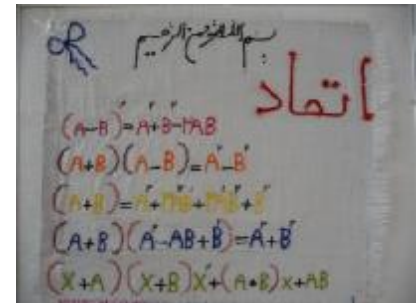 بسم الله الرحمن الرحيم
اتحاد
(A-B)²=A²+B²-۲AB
(A+B)(A-B)=A²-B²
(A+B)³=A³+۳A²B+۳AB²+B³
(A+B)(A²-AB+B²)=A³+B³
(X+A)(X+B)X²+(A+B)X+AB